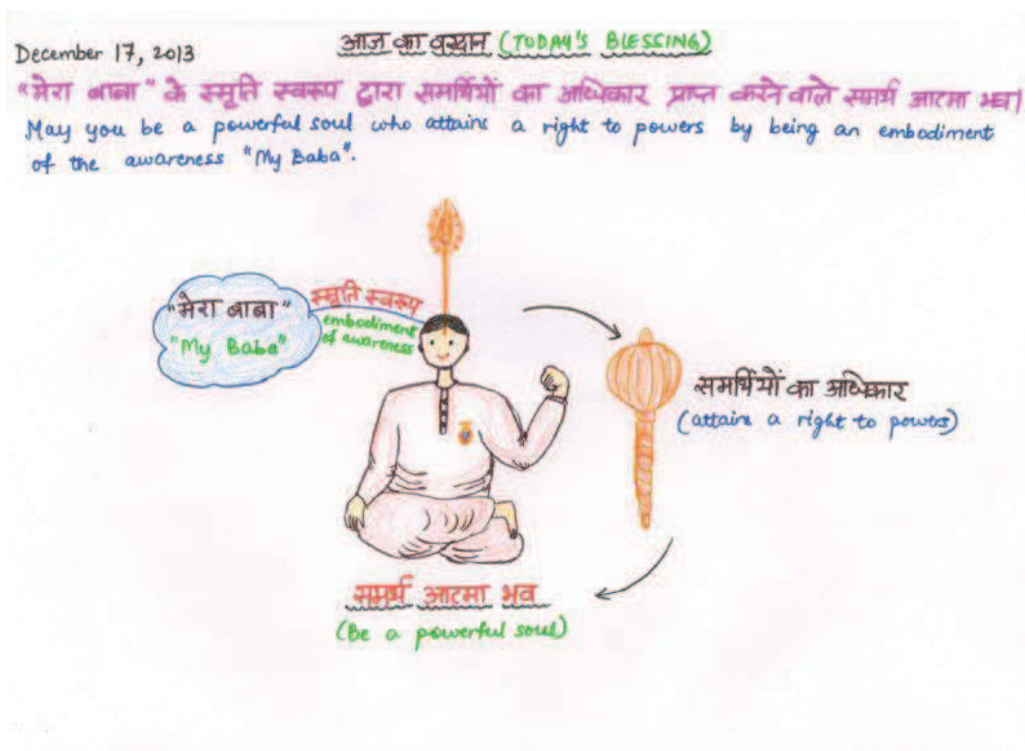 December 17, 2013
आज का वरदान (TODAY'S BLESSING)
"मेरा बाबा" के स्मृति स्वरूप द्वारा समर्थियों का अधिकार प्राप्त करने वाले समर्थ आत्मा भव।
May you be a powerful soul who attains a right to powers by being an embodiment
of the awareness "My Baba".
"मेरा बाबा"
"My Baba"
स्मृति स्वरूप
embodiment
of awareness
समर्थियों का अधिकार
(attains a right to powers)
समर्थ आत्मा भव
(Be a powerful soul)